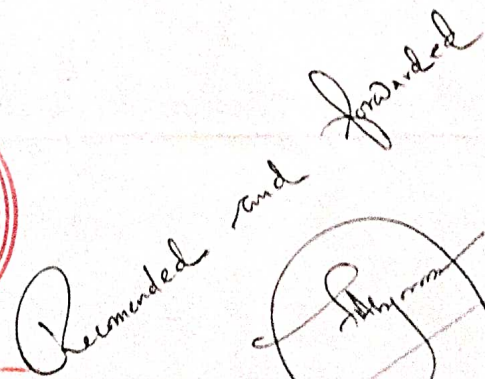 Recomended and forwarded